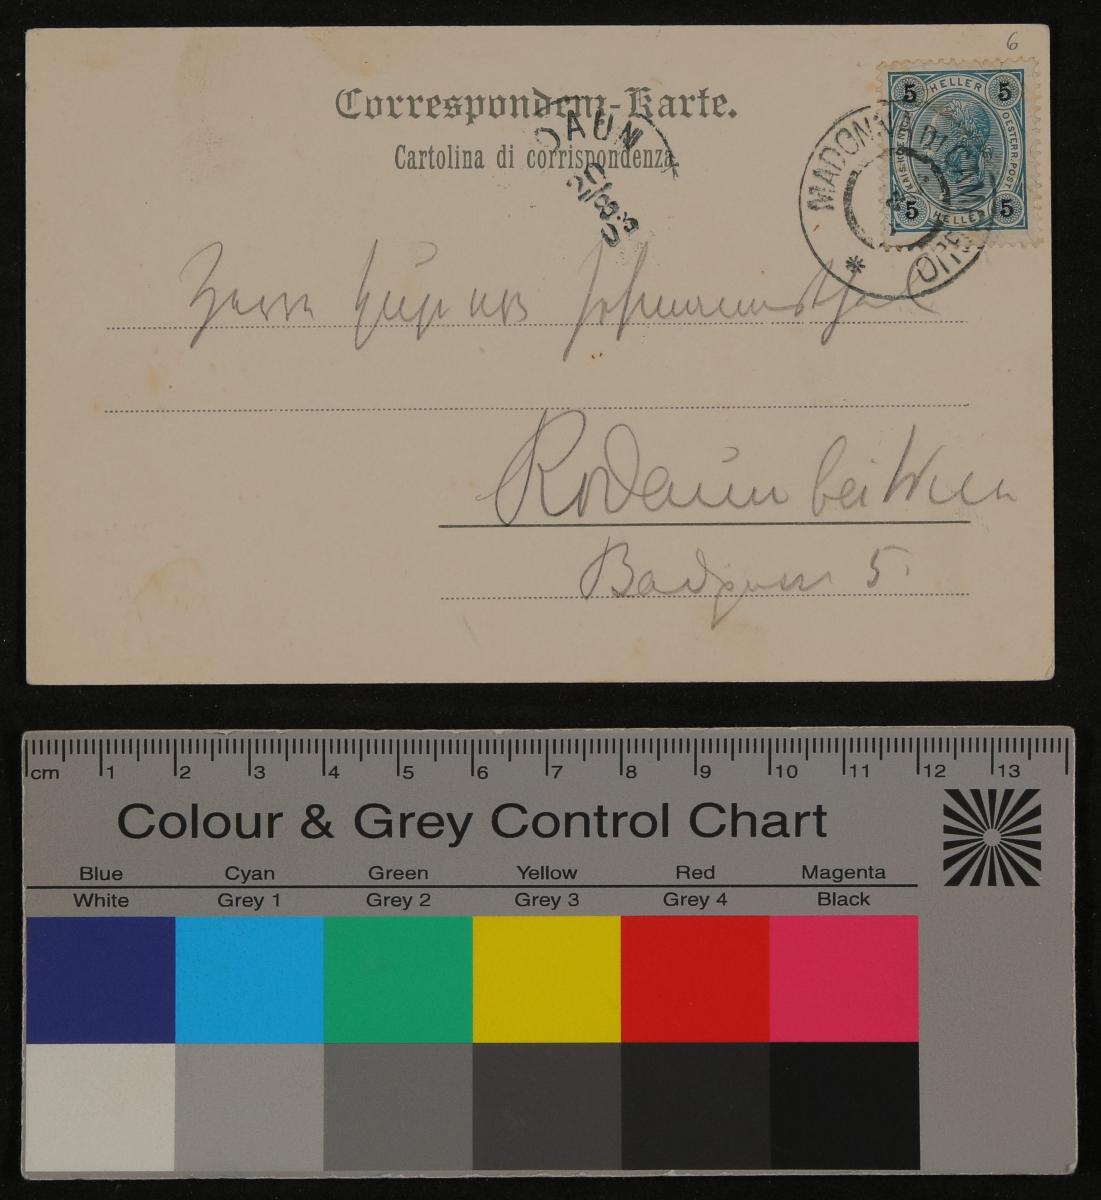 6
Correspondenz-Karte.
Cartolina di corrispondenza
DAUN
20/8 03
MADONNA DI CAMPIGLIO
5 HELLER 5
KAIS. KÖN. OESTERR. POST.
5 HELLER 5
Herrn Hugo von Hofmannsthal
Rodaun bei Wien
Badgasse 5.
cm 1 2 3 4 5 6 7 8 9 10 11 12 13
Colour & Grey Control Chart
Blue Cyan Green Yellow Red Magenta
White Grey 1 Grey 2 Grey 3 Grey 4 Black